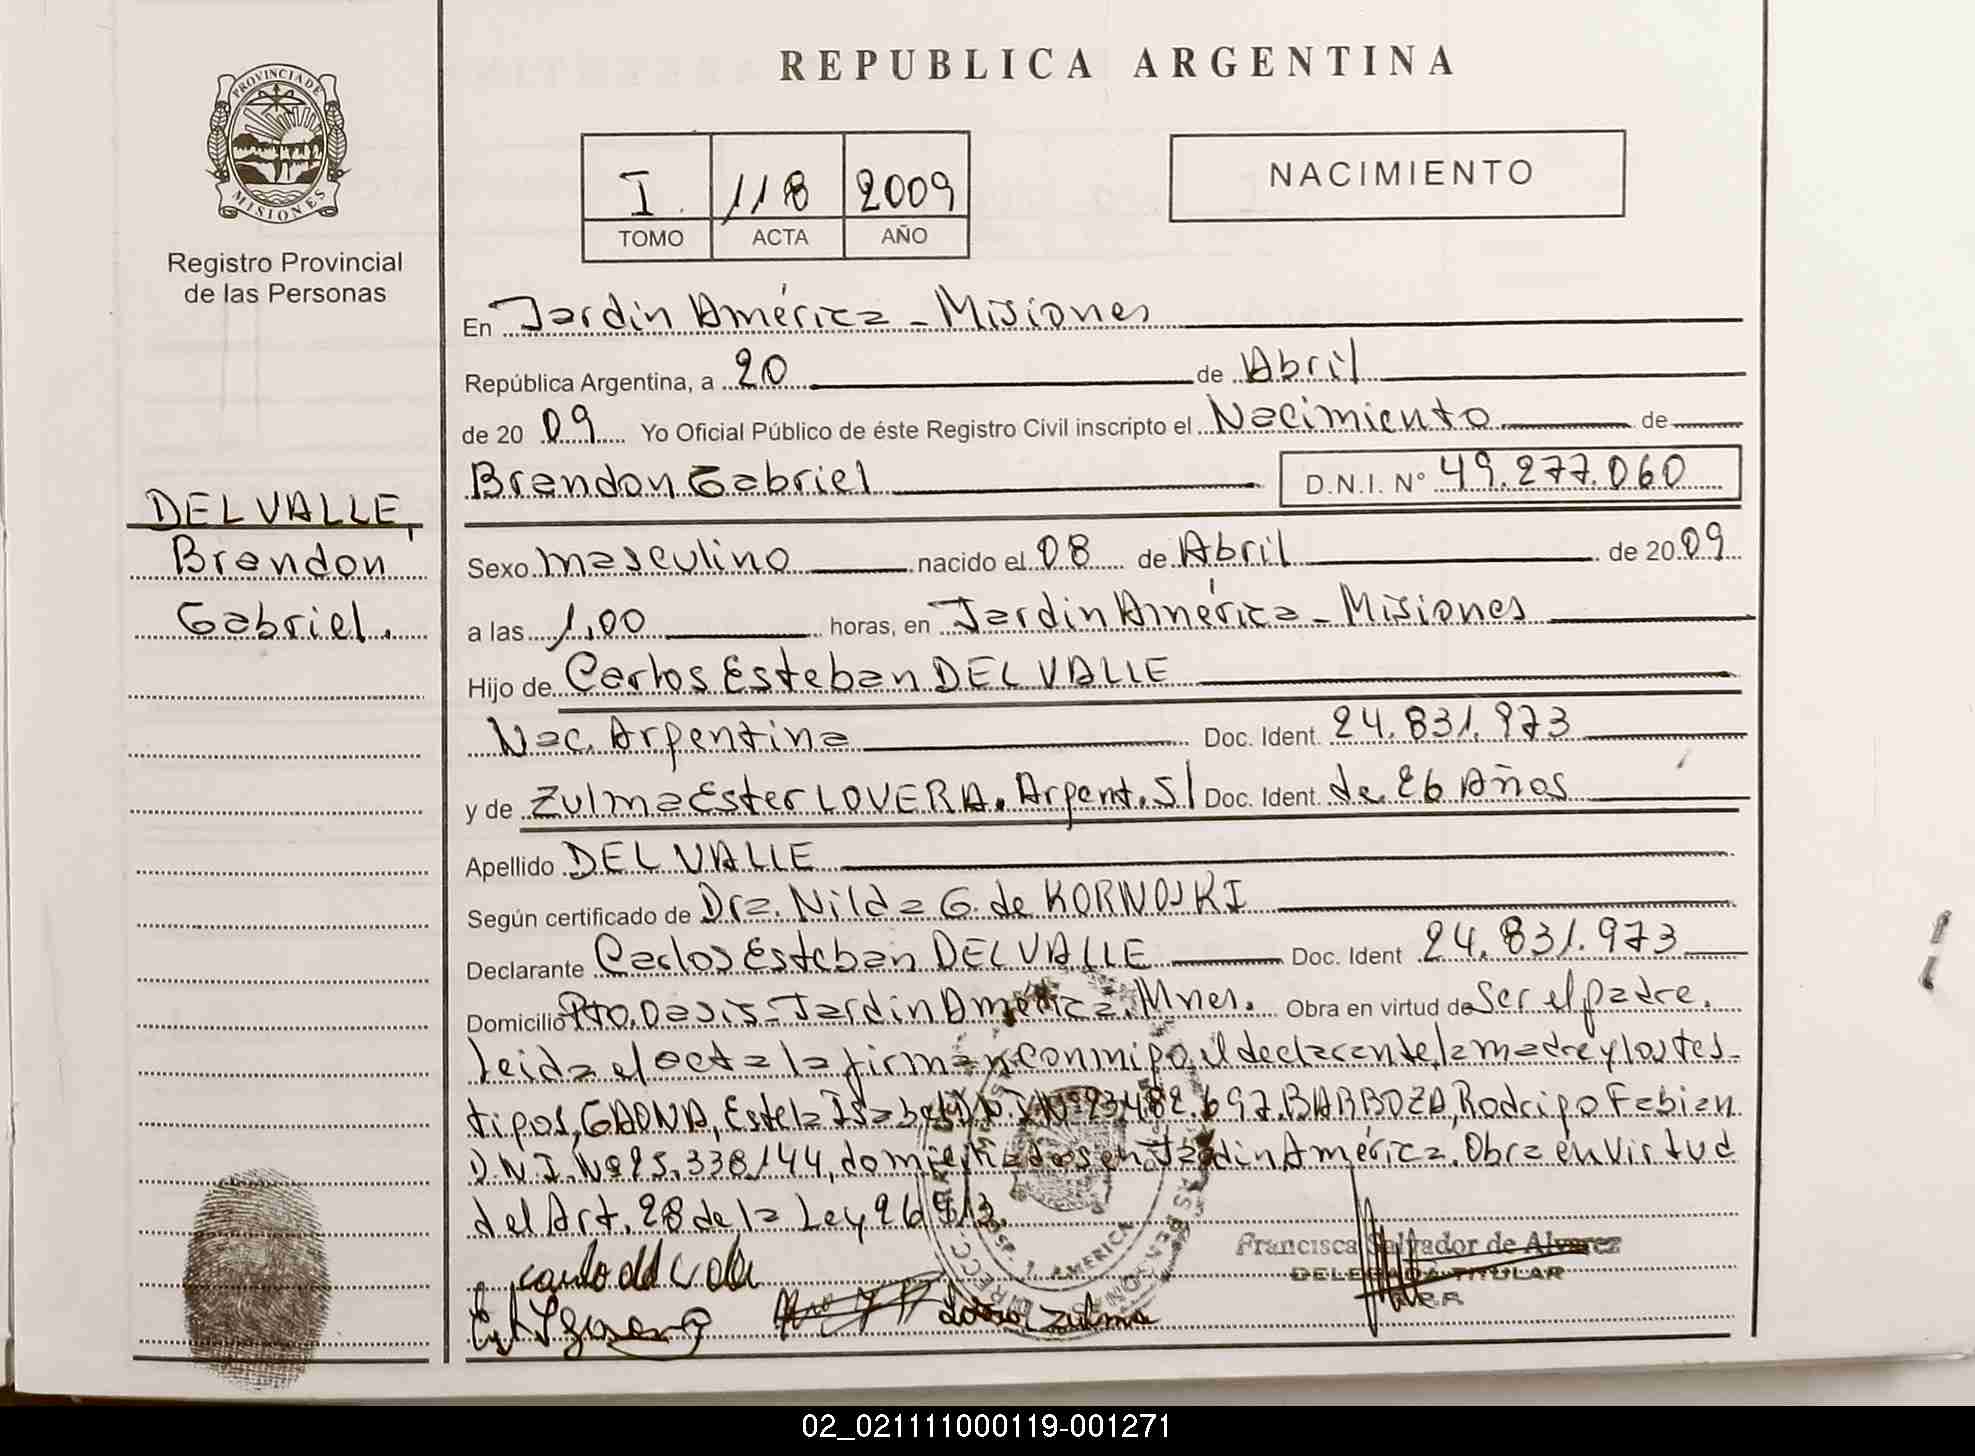 PROVINCIA DE
MISIONES
Registro Provincial
de las Personas
DEL VALLE,
Brandon
Gabriel.
REPUBLICA ARGENTINA
I. 118 2009
TOMO ACTA AÑO
NACIMIENTO
En Jardin América - Misiones
República Argentina, a 20 de Abril
de 20 09 Yo Oficial Público de éste Registro Civil inscripto el Nacimiento de
Brandon Gabriel D.N.I. N° 49.277.060
Sexo masculino nacido el 08 de Abril de 20 09
a las 1,00 horas, en Jardin América - Misiones
Hijo de Carlos Esteban DEL VALLE
Nac. Argentina Doc. Ident. 24.831.973
y de Zulma Ester LOVERA. Argent. S/ Doc. Ident. de 26 Años
Apellido DEL VALLE
Según certificado de Dra. Nilda G. de KORNOSKI
Declarante Carlos Esteban DEL VALLE Doc. Ident 24.831.973
Domicilio Pto. Oasis - Jardin América. Mnes. Obra en virtud de Ser el padre.
Leida el acta la firman conmigo, el declarante, la madre y los tes-
tigos, GAONA, Estela Isabel D.N.I. Nº 23.482.697. BARBOZA, Rodrigo Fabian
D.N.I. Nº 25.338.144, domiciliados en Jardin América. Obra en virtud
del Art. 28 de la Ley
Francisca Salvador de Alvarez
DELEGADA TITULAR
R.P.P.
Zulma
J. AMERICA
02_021111000119-001271